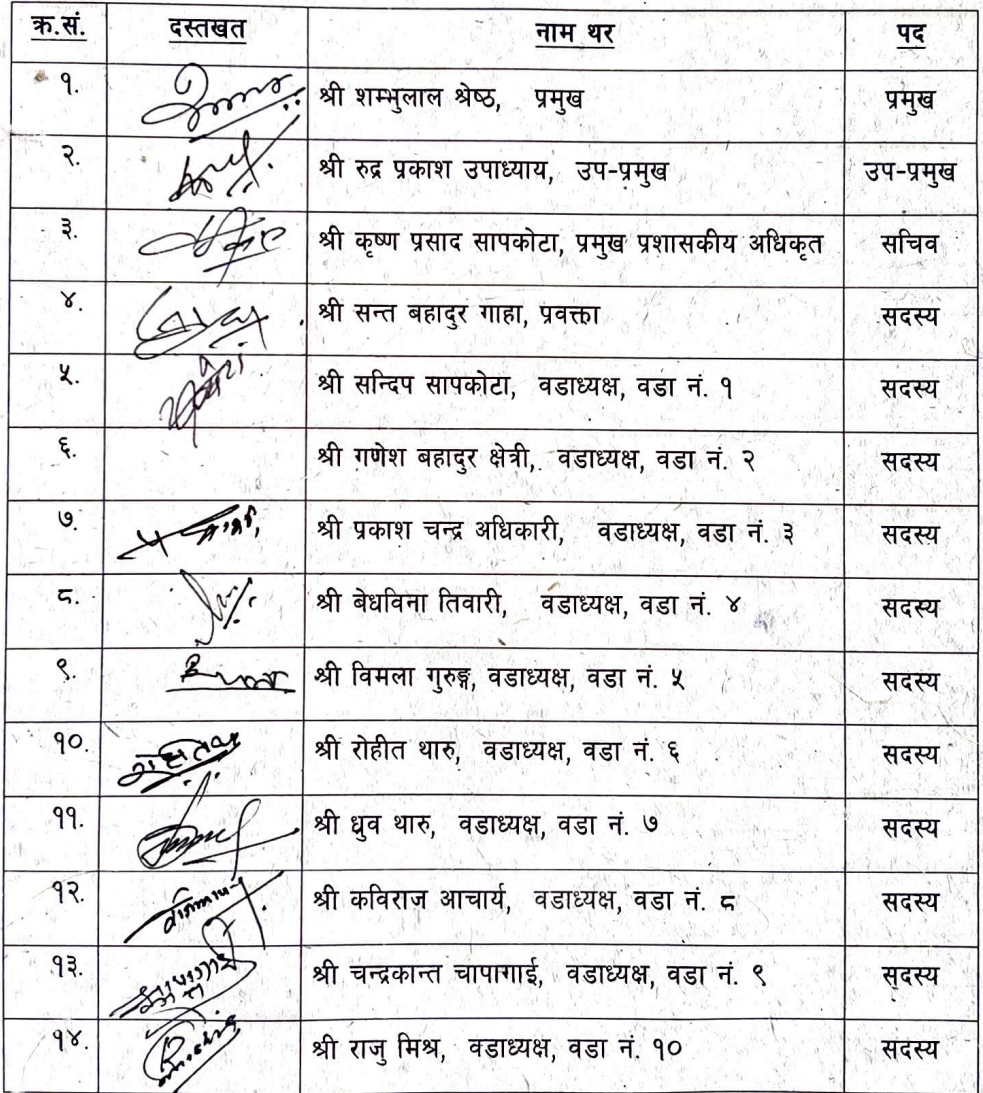 क्र.सं. दस्तखत नाम थर पद
१. श्री शम्भुलाल श्रेष्ठ, प्रमुख प्रमुख
२. श्री रुद्र प्रकाश उपाध्याय, उप-प्रमुख उप-प्रमुख
३. श्री कृष्ण प्रसाद सापकोटा, प्रमुख प्रशासकीय अधिकृत सचिव
४. श्री सन्त बहादुर गाहा, प्रवक्ता सदस्य
५. श्री सन्दिप सापकोटा, वडाध्यक्ष, वडा नं. १ सदस्य
६. श्री गणेश बहादुर क्षेत्री, वडाध्यक्ष, वडा नं. २ सदस्य
७. श्री प्रकाश चन्द्र अधिकारी, वडाध्यक्ष, वडा नं. ३ सदस्य
८. श्री बेधविना तिवारी, वडाध्यक्ष, वडा नं. ४ सदस्य
९. श्री विमला गुरुङ्ग, वडाध्यक्ष, वडा नं. ५ सदस्य
१०. श्री रोहीत थारु, वडाध्यक्ष, वडा नं. ६ सदस्य
११. श्री ध्रुव थारु, वडाध्यक्ष, वडा नं. ७ सदस्य
१२. श्री कविराज आचार्य, वडाध्यक्ष, वडा नं. ८ सदस्य
१३. श्री चन्द्रकान्त चापागाई, वडाध्यक्ष, वडा नं. ९ सदस्य
१४. श्री राजु मिश्र, वडाध्यक्ष, वडा नं. १० सदस्य